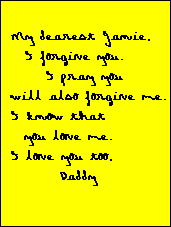 My dearest Jamie,
I forgive you.
I pray you
will also forgive me.
I know that
you love me.
I love you too,
Daddy